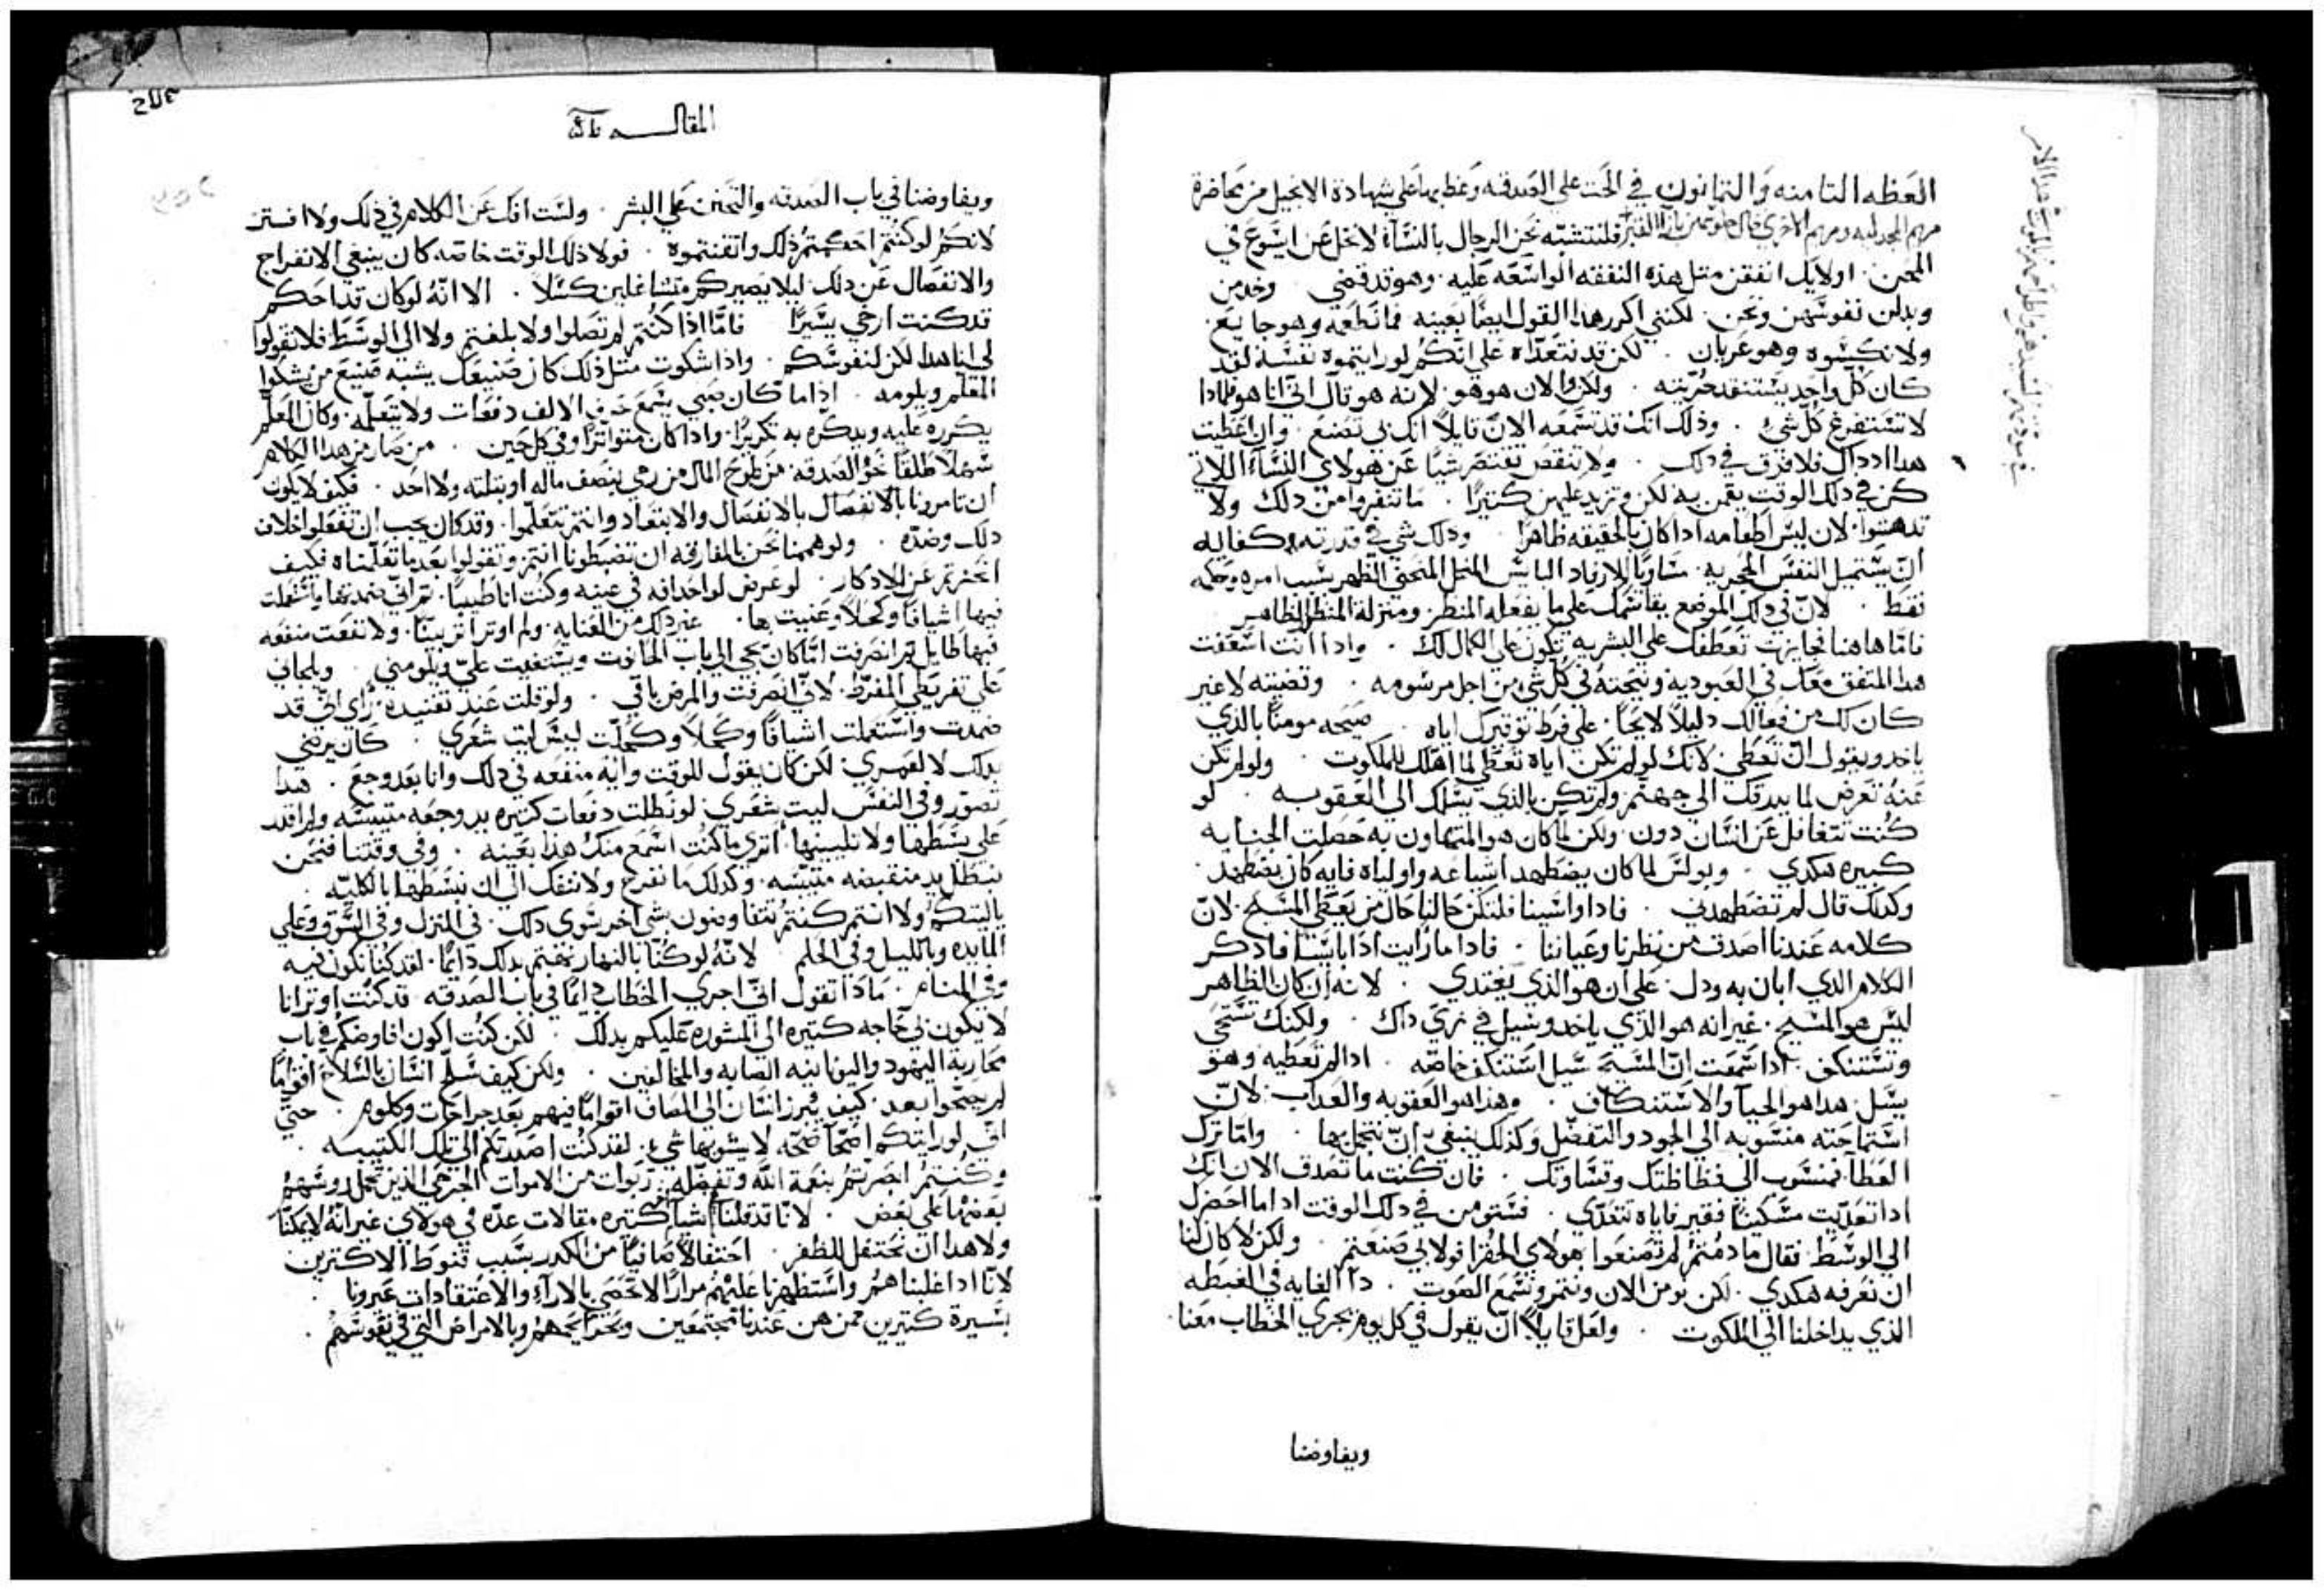 العظه التامنه والتمانون في الحت علي الصدقه وعظ بها علي شهادة الانجيل من محاضرة
مريم المجدليه ومريم الاخري فلنتشبه نحن الرجال بالنسآء لا نخل عن ايسوع في
المحن اولايك انفقن متل هذه النفقه الواسعه عليه وهو قد قضي
وبدلن نفوسهن ونحن لكنني اكرر هدا القول ايضا بعينه فما نطعمه وهو جايع
ولا نكسوه وهو عريان لكن قد نتعداه علي انكم لو رايتموه نفسه لقد
كان كل واحد يستنفد قنيته ولكن والان هو هو لانه هو قال اني انا هو فلمادا
لا تستفرغ كل شي وذلك انك قد تسمعه الان قايلا انك لي تصنع وان اعطيت
هدا ادداك فلا فرق في دلك ولا تنقص تقتصر شيا عن هولاي النسآء اللاتي
كن في دلك الوقت يقمن به لكن وتزيد عليهن كتيرا ما تنفروا من دلك ولا
تدهشوا لان ليس اطعامه ادا كان بالحقيقه ظاهرا ودلك شي في قدرته كفايه
ان يستميل النفس الحجريه مساويا لارفاد البايس المنحني الظهر بسبب امره وحكمه
فقط لان في دلك الموضع يقاسمك علي ما يفعله المنظر ومنزلة المنظر الظاهر
فاما هاهنا فجايزت تعطفك علي البشريه تكون علي الكمال لك وادا انت اسعفت
هدا المتفق معك في العبوديه ونجحته في كل شي من اجل مرسومه وقضيته لا غير
كان لك من فعالك دليلا لايحا علي فرط توقيرك اياه مومنا بالذي
ياخد ويقول ان تعطي لانك لو لم تكن اياه تعطي لما اهلك للملكوت ولو لم تكن
عنه تعرض لما بيدقك الي جهنم ولم تكن بالذي يسلمك الي العقوبه لو
كنت تتغافل عن انسان دون ولكن لما كان هو المتهاون به حصلت الجنايه
كبيره هكدي وبولس لما كان يضطهد اشياعه واولياه فايه كان يضطهد
وكدلك قال لم تضطهدني فادا واسينا فلنكن حالنا حال من يعطي المسيح لان
كلامه عندنا اصدق من نظرنا وعياننا فادا ما رايت ادا بايسا فادكر
الكلام الدي ابان به ودل علي ان هو الذي يغتدي لانه ان كان الظاهر
ليس هو المسيح غير انه هو الذي ياخد ويسيل في زي داك ولكنك تستحي
وتستنكف ادا سمعت ان المسيح سيل استنكف خاصه ادا لم تعطيه وهو
يسل هدا هو الحيآ والاستنكاف وهدا هو العقوبه والعداب لان
استماحته منسوبه الي الجود والتفضل وكدلك ينبغي ان نتجمل بها واما ترك
العطآ فمنسوب الي فظاظتك وقساوتك فان كنت ما تصدق الان انك
ادا تعديت مسكينا فقير فاياه تتعدي فستومن في دلك الوقت ادا ما احضرك
الي الوسط فقال ما دمتم لم تصنعوا بهولاي الحقرا فولا بي صنعتم ولكن لا كان لنا
ان نعرفه هكدي لكن نومن الان ونتمر ونسمع الصوت دا الغايه في الغبطه
الذي يداخلنا الي الملكوت ولعل قايلا ان يقول في كل يوم يجري الخطاب معنا
ويفاوضنا
المقالـــه
ويفاوضنا في باب الصدقه والتحنن علي البشر ولست افك عن الكلام في دلك ولا افتر
لانكم لو كنتم احكمتم ذلك واتقنتموه فولا ذلك الوقت خاصه كان ينبغي الانفراج
والانفصال عن دلك ليلا يصيركم متشاغلين كسلا الا انه لو كان قد احكم
قد كنت ارخي يسيرا فاما اذا كنتم لم تصلوا ولا بلغتم ولا الي الوسط فلا تقولوا
لي انا هدا لكن لنفوسكم واذا شكوت متل ذلك كان صنيعك يشبه صنيع من يشكوا
المعلم ويلومه اذا ما كان صبي يسمع حرف الالف دفعات ولا يتعلمه وكان المعلم
يكرره عليه ويدكره به تكريرا وادا كان متواترا وفي كل حين من صار من هدا الكلام
سهلا طلقا نحو الصدقه من طرح المال من رمي بنصف ماله او بتلته ولا احد فكيف لا يكون
ان تامرونا بالانفصال بالانفصال والابتعاد وانتم تتعلموا وقد كان يجب ان تفعلوا خلاف
دلك وضده ولو هممنا نحن بالمفارقه ان تضبطونا انتم وتقولوا بعد ما تعلمناه فكيف
انحزتم عن الادكار لو عرض لواحد افه في عينه وكنت انا طبيبا تم اني ضمدتها واستعملت
فيها اشيافا وكحلا وعنيت بها غير دلك من العنايه ولم اوتر اترا بينا ولا نفعت منفعه
فيها طايل تم انصرفت اتراه كان يجي الي باب الحانوت ويستغيت علي ويلومني ويلحاني
علي تفريطي المفرط لاني انصرفت والمرض باقي ولو قلت عند تفنيده راي اني قد
ضمدت واستعملت اشيافا وكحلا وكملت ليس ليت شعري كان يرضي
بدلك لا لعمري لكن كان يقول للوقت وايه منفعه في دلك وانا بعد وجع هدا
تصور وفي النفس ليت شعري لو نطلت دفعات كتيره يد وجعه متيبسه ولم اقدر
علي بسطها ولا تليينها اتري ما كنت اسمع منك هدا بعينه وفي وقتنا فنحن
ننطل يد منقبضه متيبسه وكدلك ما نفرغ ولا ننفك الي ان نبسطها بالكليه
ياليتكم ولا انتم كنتم تتفاوضون بشي اخر سوي دلك في المنزل وفي السوق وعلي
المايده وبالليل وفي الحلم لانه لو كنا بالنهار نهتم بدلك دايما لقد كنا نكون فيه
وفي المنام مادا تقول اني اجري الخطاب دايما في باب الصدقه قد كنت اوتر انا
لا يكون بي حاجه كتيره الي المشوره عليكم بدلك لكن كنت اكون افاوضكم في باب
محاربة اليهود واليونانيه الصابه والمخالفين ولكن كيف يسلح انسان بالسلاح اقواما
لم يصحوا بعد كيف يبرز انسان الي المصاف اقواما فيهم بعد جراحات وكلوم حتي
اني لو رايتكم اصحآ صحه لا يشوبها شي لقد كنت اصعدتكم الي تلك الكتيبه
وكنتم ابصرتم بنعمة الله وتفضله ربوات من الاموات الجرحي الذين تحمل روسهم
بعضها علي بعض لانا قد قلنا اشيآ كتيره مقالات عده في هولاي غير انه لا يمكنا
ولا هدا ان نحتفل للظفر احتفالا صافيا من الكدر بسبب قنوط الاكترين
لانا ادا غلبناهم واستظهرنا عليهم مرارا لا تحصي بالارآء والاعتقادات عيرونا
بسيرة كتيرين ممن هن عندنا مجتمعين وبالامراض التي في نفوسهم